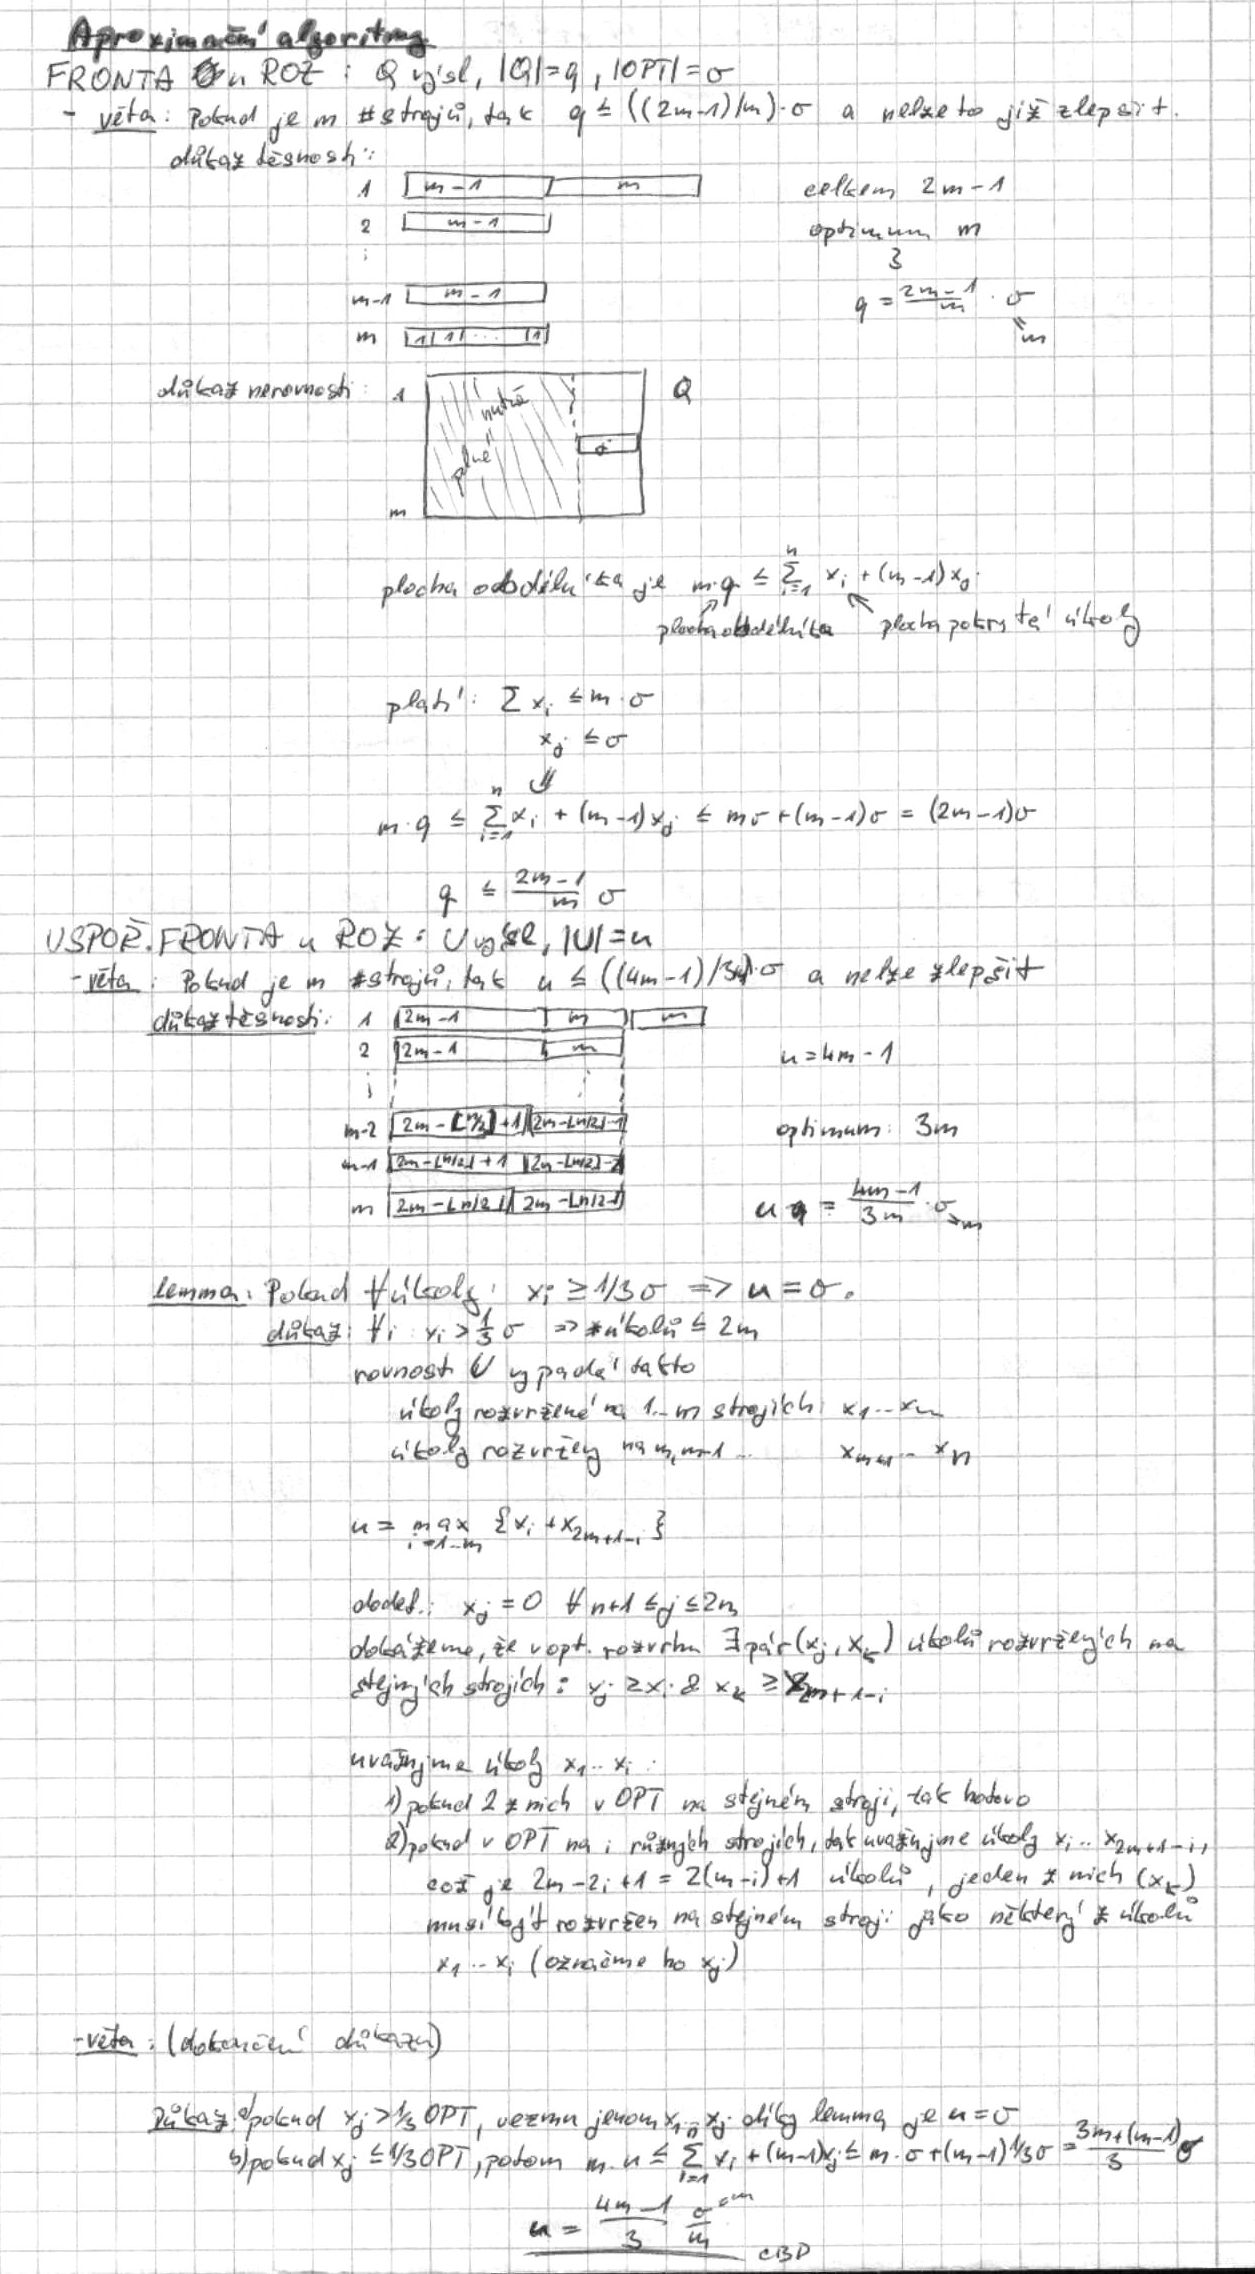 Aproximační algoritmy
FRONTA u ROZ : Q výsl, |Q|=q, |OPT|=σ
- věta: Pokud je m #strojů, tak q ≤ ((2m-1)/m)·σ a nelze to již zlepšit.
důkaz těsnosti:
1 m-1 m celkem 2m-1
2 m-1 optimum m
⋮ 3
m-1 m-1 q = (2m-1)/m · σ
m 1 1 ... 1 = m
důkaz nerovnosti: 1 nutně plné j Q
m
plocha obdélníka je m·q ≤ Σ_{i=1}^{n} x_i + (m-1)x_j
plocha obdélníka plocha pokrytá úkoly
platí: Σ x_i ≤ m·σ
x_j ≤ σ
⇓
m·q ≤ Σ_{i=1}^{n} x_i + (m-1)x_j ≤ mσ+(m-1)σ = (2m-1)σ
q ≤ (2m-1)/m σ
USPOŘ. FRONTA u ROZ: U výsl, |U|=u
- věta: Pokud je m #strojů, tak u ≤ ((4m-1)/3m)·σ a nelze zlepšit
důkaz těsnosti: 1 2m-1 m m
2 2m-1 m u=4m-1
⋮
m-2 2m-⌊n/2⌋+1 2m-⌊n/2⌋-1 optimum: 3m
m-1 2m-⌊n/2⌋+1 2m-⌊n/2⌋-2
m 2m-⌊n/2⌋ 2m-⌊n/2⌋ u = (4m-1)/3m · σ
lemma: Pokud ∀úkoly: x_i ≥ 1/3σ ⇒ u=σ.
důkaz: ∀i x_i > 1/3 σ ⇒ #úkolů ≤ 2m
rovnost U vypadá takto
úkoly rozvržené na 1..m strojích: x_1..x_m
úkoly rozvrženy na m,m-1... x_{m+1}..x_n
u = max_{i=1..m} {x_i + x_{2m+1-i}}
dodef.: x_j=0 ∀ n+1 ≤ j ≤ 2m
dokážeme, že v opt. rozvrhu ∃ pár (x_j, x_k) úkolů rozvržených na
stejných strojích: x_j ≥ x_i & x_k ≥ x_{2m+1-i}
uvažujme úkoly x_1..x_i :
1) pokud 2 z nich v OPT na stejném stroji, tak hotovo
2) pokud v OPT na i různých strojích, tak uvažujme úkoly x_i..x_{2m+1-i},
což je 2m-2i+1 = 2(m-i)+1 úkolů, jeden z nich (x_k)
musí být rozvržen na stejném stroji jako některý z úkolů
x_1..x_i (označme ho x_j)
- věta: (dokončení důkazu)
Důkaz: a) pokud x_j > 1/3 OPT, vezmu jenom x_1..x_j díky lemma je u=σ
b) pokud x_j ≤ 1/3 OPT, potom m·u ≤ Σ_{i=1}^{n} x_i + (m-1)x_j ≤ m·σ+(m-1)1/3σ = (3m+(m-1))/3 σ
u = (4m-1)/3 σ/m
CBD